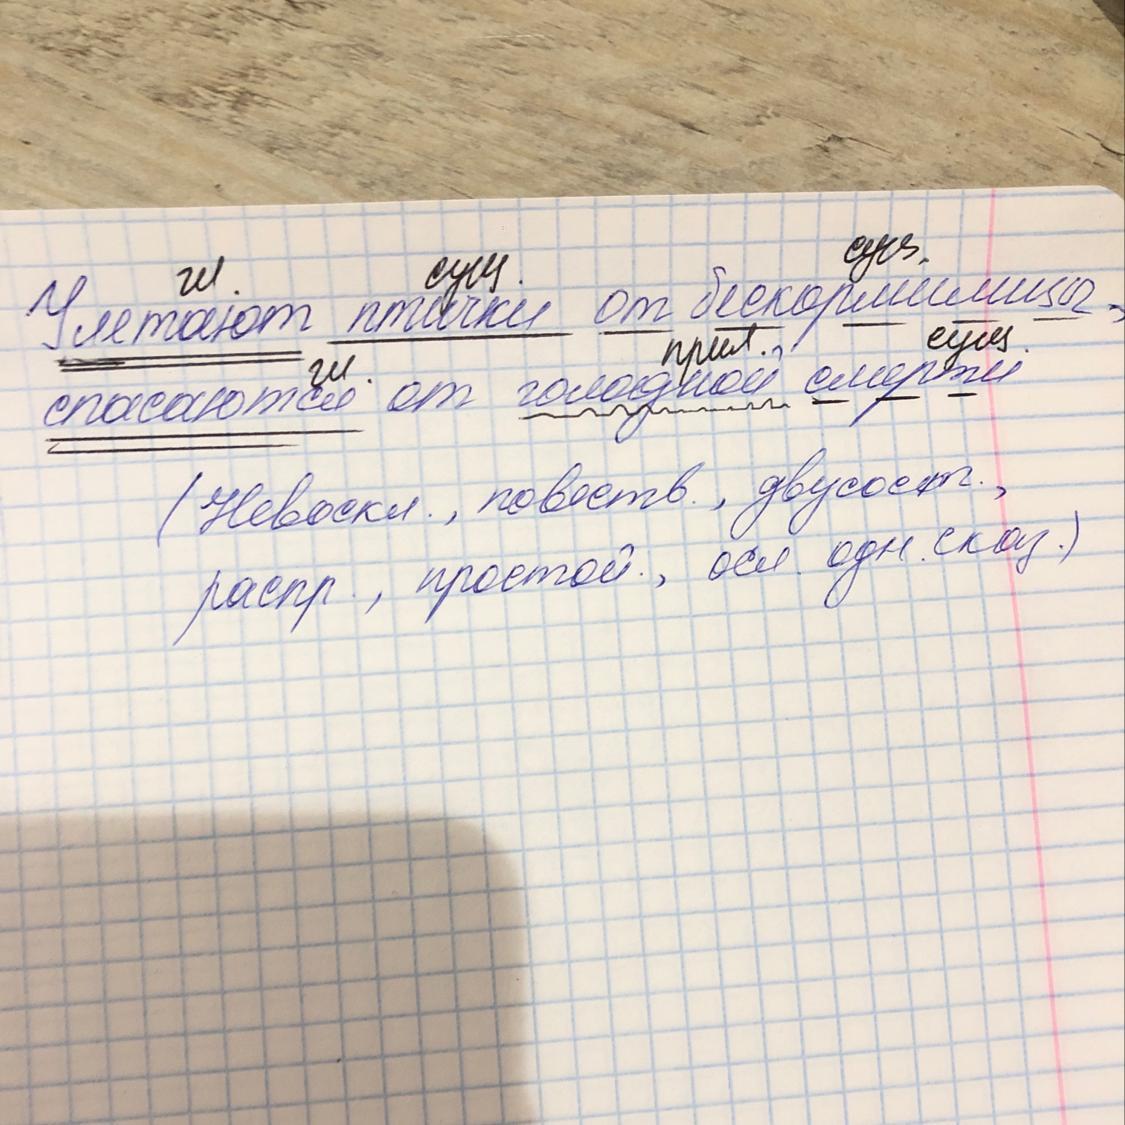 гл. сущ. сущ.
Улетают птички от бескормицы,
гл. прил. сущ.
спасаются от голодной смерти
(Невоскл., повеств., двусост.,
распр., простой., осл. одн. сказ.)